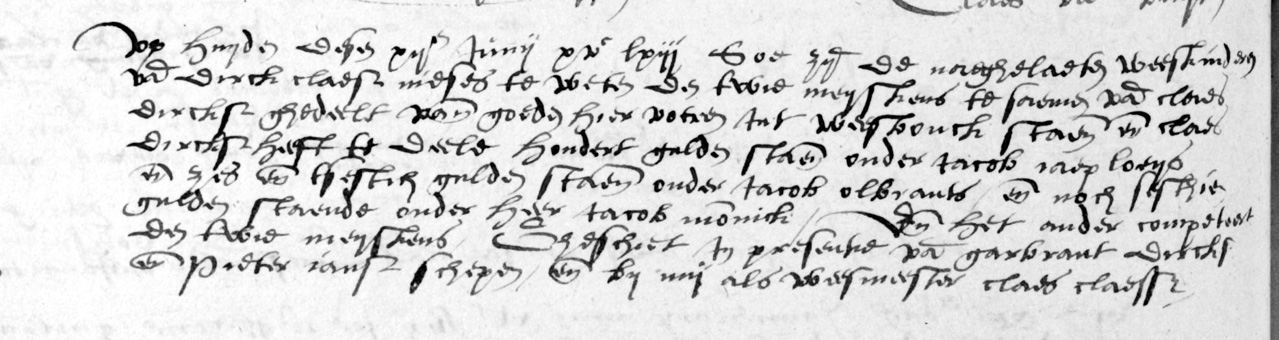 op huijden desen xijen Junij xvc lxiij Soe zijn de naeghelaeten weeskinderen
van dirck claesz meses te weten den twie meijskens te saemen van claes
dircksz ghedeelt van goeden hier voeren int weesbouck staen en claes
dircksz heeft te deele hondert gulden staen onder Jacob Jaep loeijs
en zes en tsestich gulden staen onder Jacob olbrants en noch seshien
gulden staende onder heer Jacob monnick / Vn het ander competeert
den twie meijskens / Gheschiet in presentie van garbrant dircks
en Pieter Jansz schepen en by mij als weesmeester claes claessz